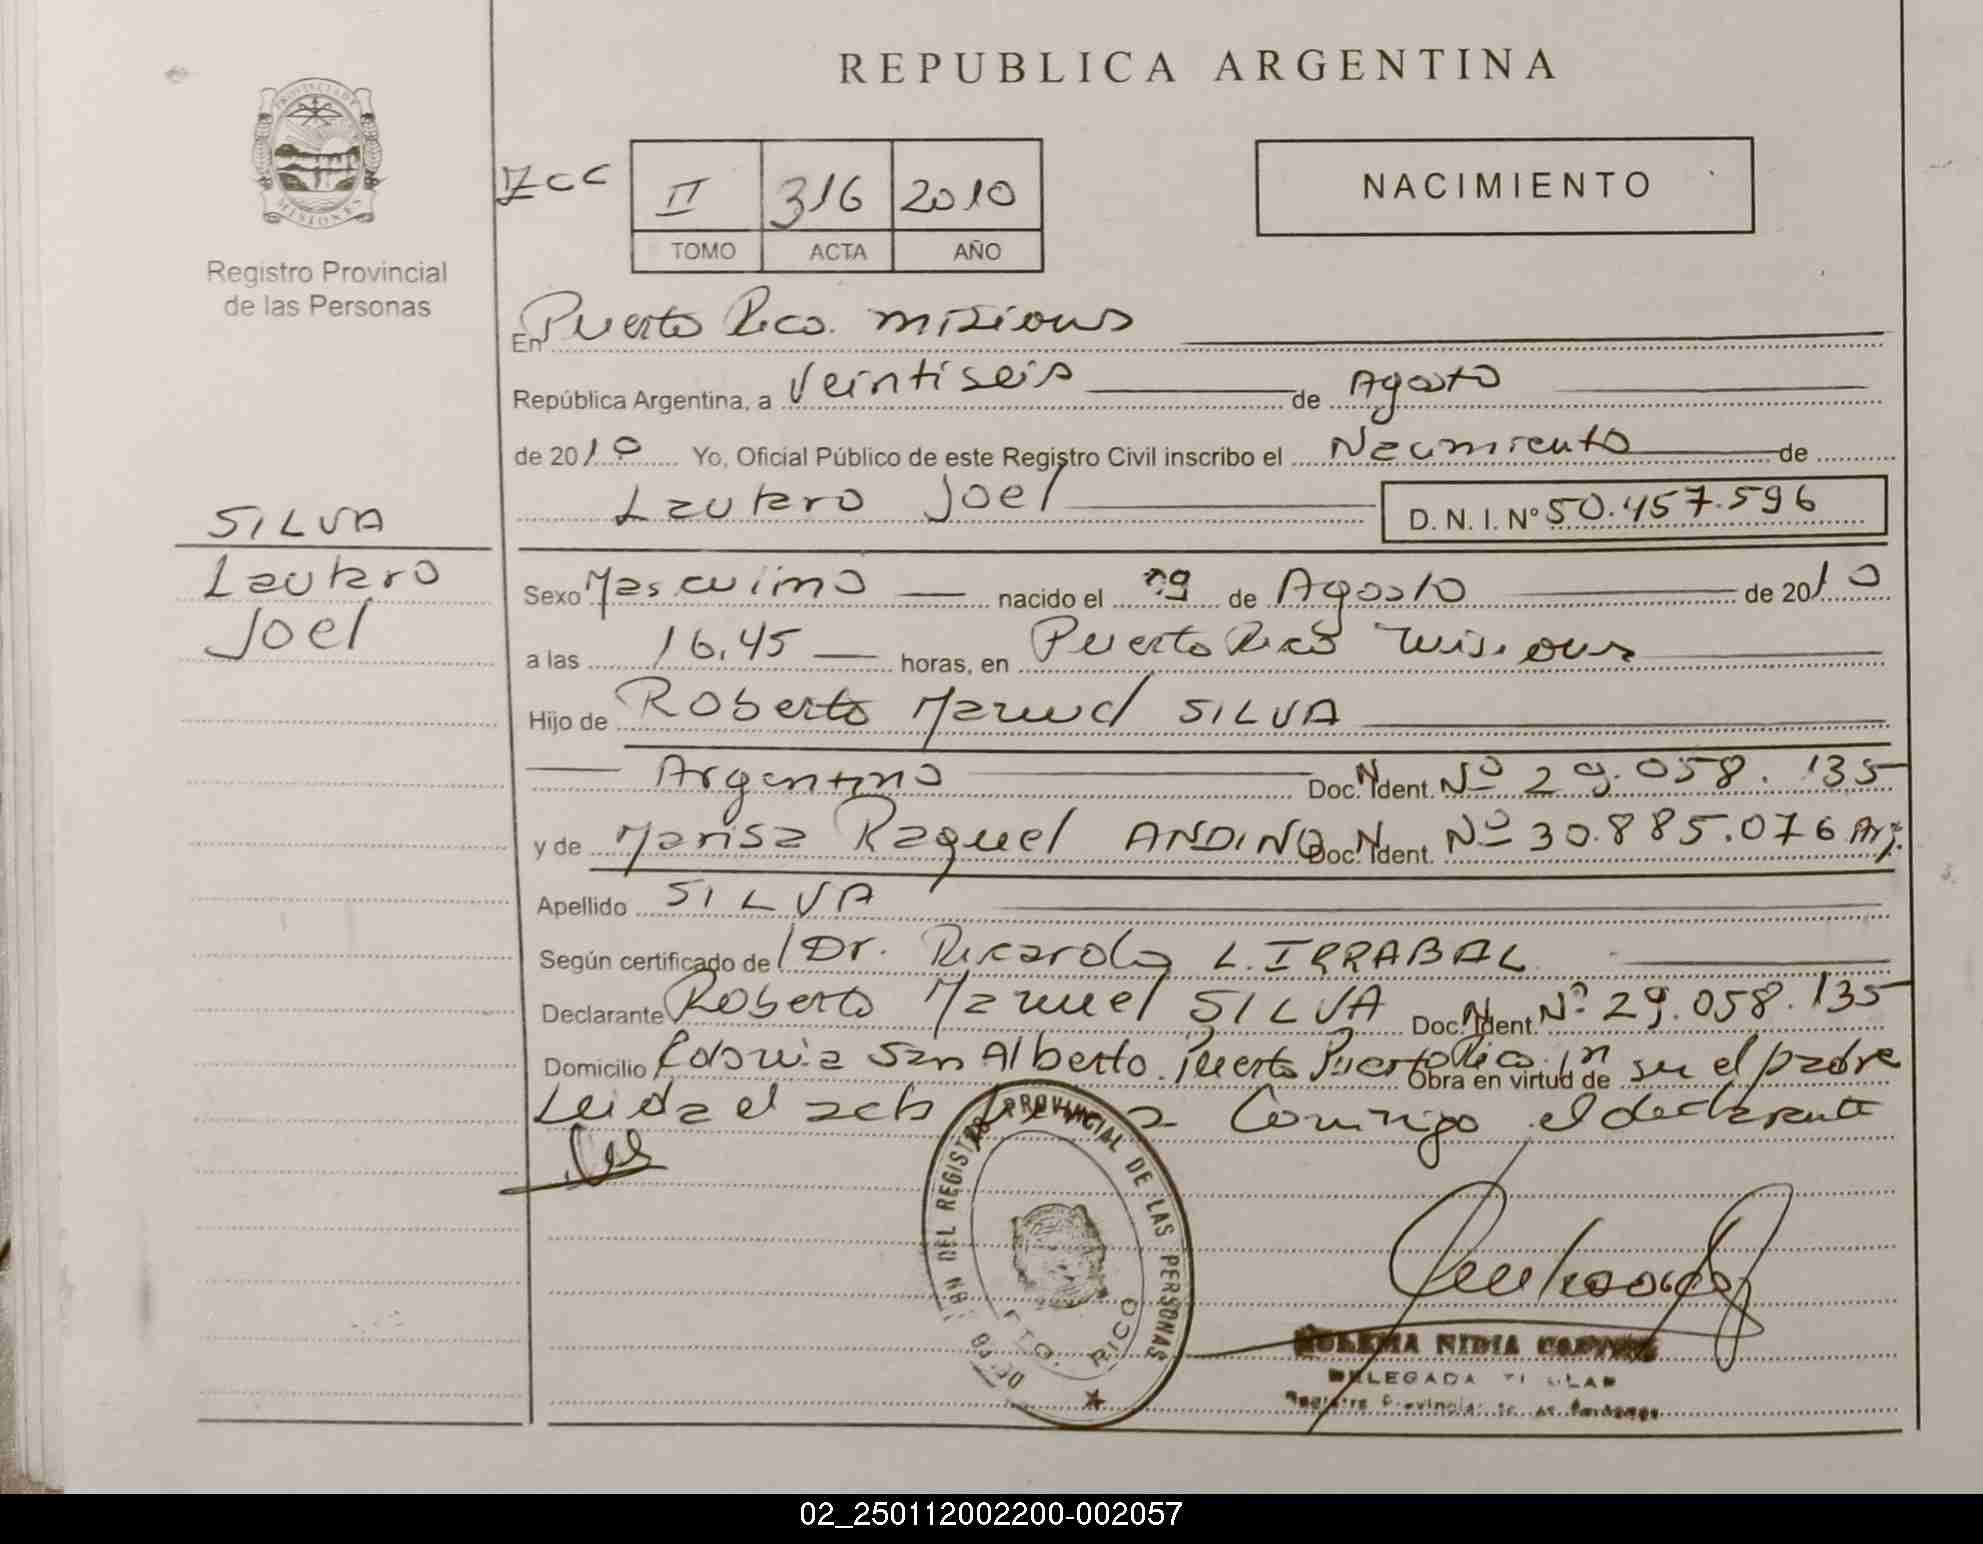 REPUBLICA ARGENTINA
PROVINCIA DE
MISIONES
Registro Provincial
de las Personas
II 316 2010
TOMO ACTA AÑO
NACIMIENTO
En Puerto Rico. Misiones
República Argentina, a Veintiseis de Agosto
de 2010 Yo, Oficial Público de este Registro Civil inscribo el Nacimiento de
Lautaro Joel D. N. I. Nº 50.457.596
SILVA
Lautaro
Joel
Sexo Masculino nacido el 19 de Agosto de 2010
a las 16,45 horas, en Puerto Rico Misiones
Hijo de Roberto Manuel SILVA
Argentino Doc. Ident. Nº 29.058.135
y de Marisa Raquel ANDINO Doc. Ident. Nº 30.885.076 Arg.
Apellido SILVA
Según certificado de Dr. Ricardo L. IRRABAL
Declarante Roberto Manuel SILVA Doc. Ident. Nº 29.058.135
Domicilio Colonia San Alberto. Puerto Rico Obra en virtud de ser el padre
Leida el acta conmigo el declarante
DEL REGISTRO PROVINCIAL DE LAS PERSONAS
PTO. RICO
NIDIA
DELEGADA TITULAR
Registro Provincial de las Personas
02_250112002200-002057